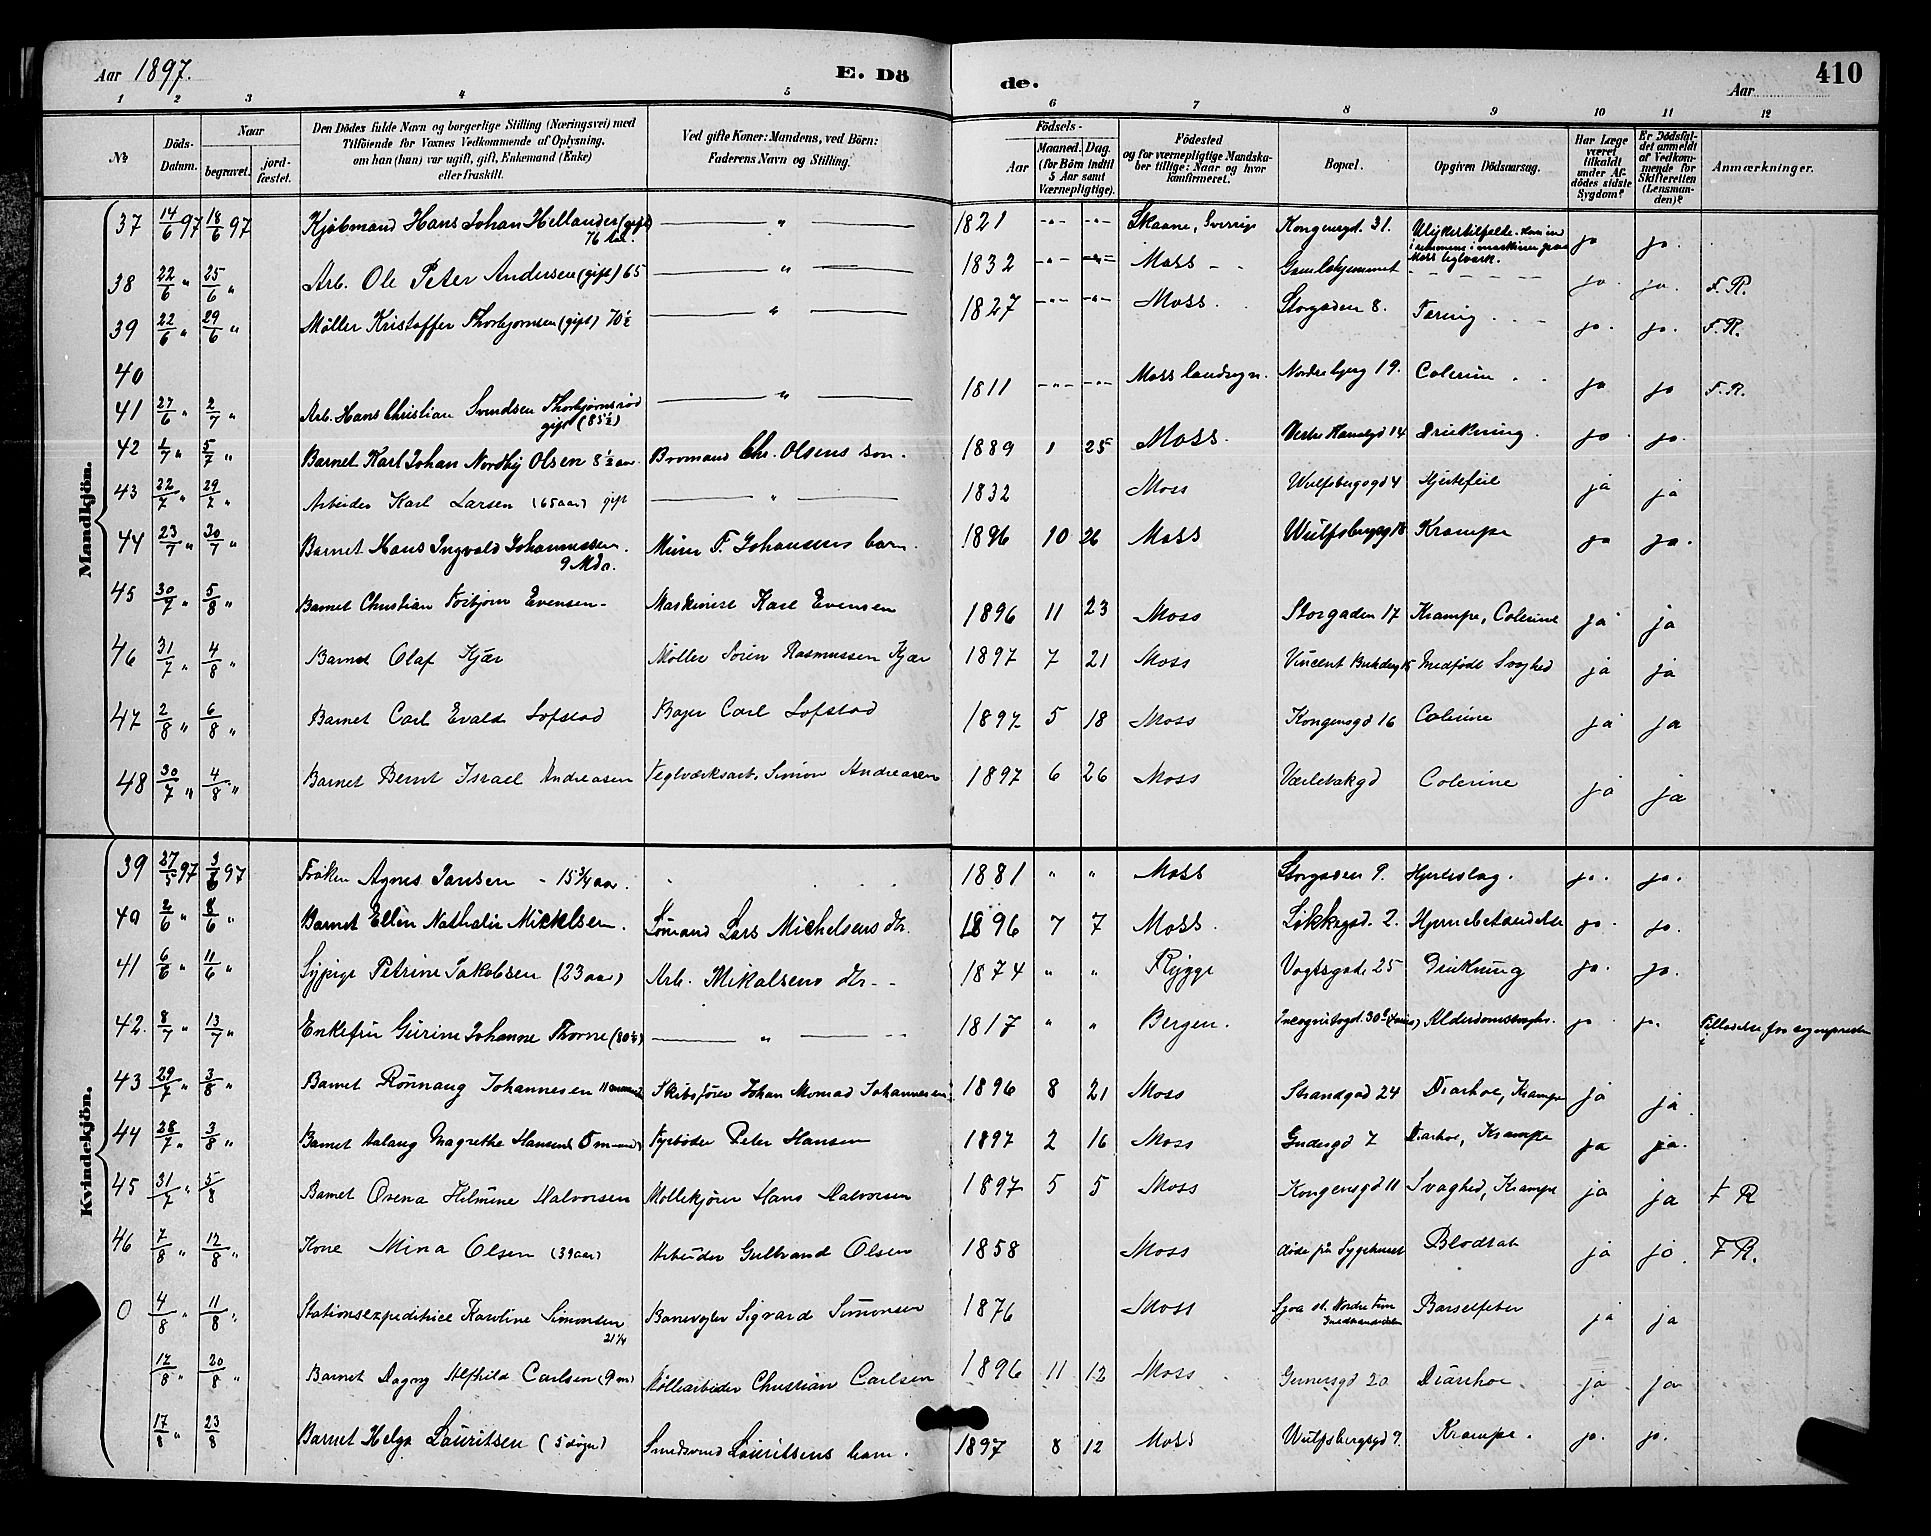 Aar 1897. E. Dö de. Aar 410
1 2 3 4 5 6 7 8 9 10 11 12
No. Döds-Datum. Naar begravet. jordfæstet. Den Dödes fulde Navn og borgerlige Stilling (Næringsvei) med Tilföiende for Voxnes Vedkommende af Oplysning, om han (hun) var ugift, gift, Enkemand (Enke) eller fraskilt. Ved gifte Koner: Mandens, ved Börn: Faderens Navn og Stilling. Födsels- Aar Maaned. Dag. (for Börn indtil 5 Aar samt Værnepligtige). Födested og for værnepligtige Mandskaber tillige: Naar og hvor konfirmeret. Bopæl. Opgiven Dödsaarsag. Har Læge været tilkaldt under Afdödes sidste Sygdom? Er Dödsfaldet anmeldt af Vedkommende for Skifteretten (Lensmanden)? Anmærkninger.
Mandkjön.
37 14/6 97 18/6 97 Kjöbmand Hans Johan Hellander (gift) 76 " 1821 -"- -"- Skaane, Sverrige Kongensgd. 31. Ulykkestilfelde Moss Teglværk. ja ja.
38 22/6 " 25/6 " Arb. Ole Peter Andersen (gift) 65 " 1832 -"- -"- Moss Gamlehjemmet ja. ja. F.R.
39 22/6 " 29/6 " Møller Kristoffer Thorbjørnsen (gift) 70½ " 1827 -"- -"- Moss. Storgaden 8. Tæring ja. ja. F.R.
40
41 27/6 " 2/7 " Arb. Hans Christian Svendsen Thorbjørnsrød gift (85½) " 1811 -"- -"- Moss landsogn. Nordre bjerg 19. Colerine ja ja F.R.
42 1/7 " 5/7 " Barnet Karl Johan Nordby Olsen 8½ aar. Bromand Chr. Olsens søn. 1889 1 25 Moss. Vestre Kanalgd 14 Drukning. ja. ja.
43 22/7 " 29/7 " Arbeider Karl Larsen (65 aar) gift " 1832 Moss Wulfsbergsgd 4 Hjertefeil ja ja
44 23/7 " 30/7 " Barnet Hans Ingvald Johannessen. 9 Mdr. Murer F. Johansens barn. 1896 10 26 Moss Wulfsbergsgd 18 Krampe ja ja.
45 30/7 " 5/8 " Barnet Christian Torbjørn Evensen Maskinist Karl Evensen 1896 11 23 Moss Storgaden 17 Krampe, Colerine ja ja
46 31/7 " 4/8 " Barnet Olaf Kjær Møller Søren Rasmussen Kjær 1897 7 21 Moss Vincent Budesgd 15 Medfødt Svaghed ja ja
47 2/8 " 6/8 " Barnet Carl Evald Lofstad Bager Carl Lofstad 1897 5 18 Moss Kongensgd 16 Colerine ja ja
48 30/7 " 4/8 " Barnet Bernt Israel Andreasen Teglværksarb. Simon Andreasen 1897 6 26 Moss Værlebakgd Colerine ja ja
Kvindekjön.
39 27/5 97 3/6 97 Frøken Agnes Jansen - 15¾ aar. 1881 " " Moss Storgaden 9. Hjerteslag. ja. ja.
40 2/6 " 8/6 " Barnet Ellen Nathalie Mickelsen. Sømand Lars Michelsens dtr. 1896 7 7 Moss. Løkkegd. 2. Hjernebetændelse ja. ja.
41 6/6 " 11/6 " Sypige Petrine Jakobsen (23 aar) Arb. Mikalsens dtr. 1874 " " Rygge Vogtsgade 25 Drukning ja. ja.
42. 8/7 " 13/7 " Enkefru Geirine Johanne Thorne (80½) " 1817 " " Bergen. Incognitogd. 30 Alderdomssvaghed. ja. ja.
43 29/7 " 3/8 " Barnet Rønnaug Johannesen 11 Skibsfører Johan Monrad Johannesen 1896 8 21 Moss Strandgad 24 Diarhoe, Krampe ja ja
44 28/7 " 3/8 " Barnet Aslaug Magrethe Hansen 5 Fyrbøder Peter Hansen 1897 2 16 Moss Gudesgd 7 Diarhoe, Krampe ja ja.
45 31/7 " 5/8 Barnet Ovena Hilmine Halvorsen Møllekjører Hans Halvorsen 1897 5 5 Moss Kongensgd 11 Svaghed, Krampe ja ja F R
46 7/8 " 12/8 " Kone Mina Olsen (39 aar) Arbeider Gulbrand Olsen 1858 Moss døde på Sygehuset Blodtab ja ja. F R.
0 4/8 " 11/8 " Stationsexpeditrice Karoline Simonsen 21¼ Banevogter Sigvard Simonsen 1876 Moss Sjoa st. Nordre Fron Gudbrandsdalen Barselfeber ja ja
12/8 " 20/8 " Barnet Dagny Alfhild Carlsen (9 m) Møllearbeider Christian Carlsen 1896 11 12 Moss Gernersgd 20 Diarrhoe. ja ja
17/8 " 23/8 Barnet Helga Lauritsen (5 døgn) Smedsvend Lauritsens barn. 1897 8 12 Moss Wulfsbergsgd 9. Krampe. ja. ja.